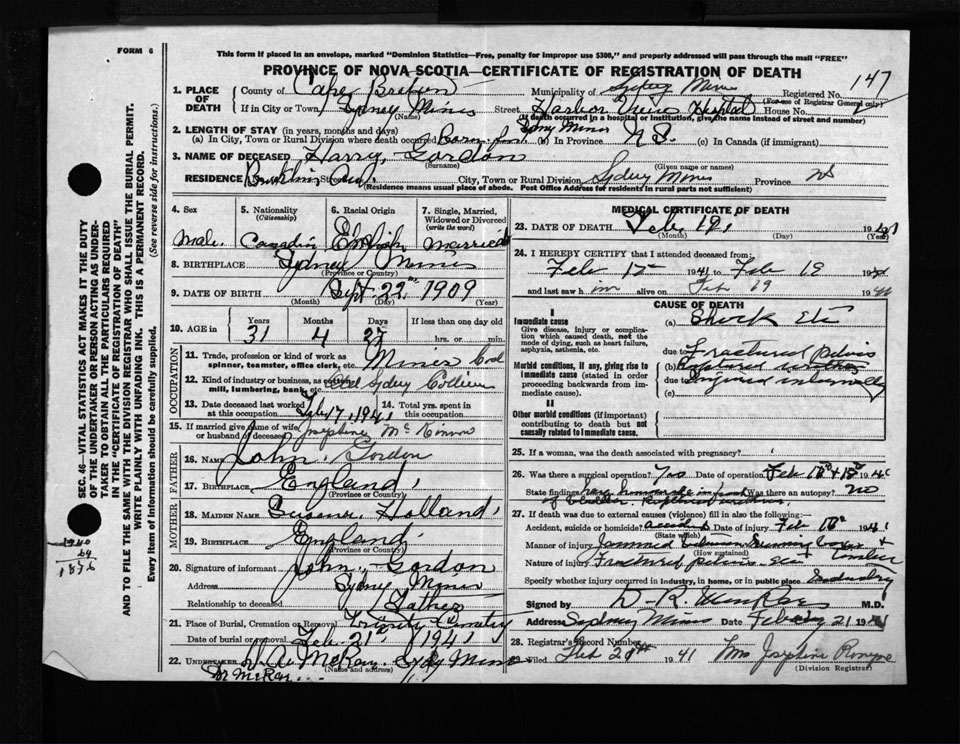 FORM 6
This form if placed in an envelope, marked "Dominion Statistics—Free, penalty for improper use $300," and properly addressed will pass through the mail "FREE"
PROVINCE OF NOVA SCOTIA—CERTIFICATE OF REGISTRATION OF DEATH
147
1. PLACE OF DEATH County of Cape Breton Municipality of Sydney Mines Registered No.
(For use of Registrar General only)
If in City or Town Sydney Mines Street Harbor View Hospital House No.
(Name) (If death occurred in a hospital or institution, give the name instead of street and number)
2. LENGTH OF STAY (in years, months and days)
(a) In City, Town or Rural Division where death occurred Born Sydney Mines (b) In Province N.S. (c) In Canada (if immigrant)
3. NAME OF DECEASED Harry Gordon
(Surname) (Given name or names)
RESIDENCE Street City, Town or Rural Division Sydney Mines Province NS
(Residence means usual place of abode. Post Office Address for residents in rural parts not sufficient)
4. Sex 5. Nationality (Citizenship) 6. Racial Origin 7. Single, Married, Widowed or Divorced (write the word)
Male. Canadin English Married
8. BIRTHPLACE Sydney Mines
(Province or Country)
9. DATE OF BIRTH Sept. 22nd 1909
(Month) (Day) (Year)
10. AGE in Years Months Days If less than one day
31 4 27 hrs. or min.
OCCUPATION
11. Trade, profession or kind of work as spinner, teamster, office clerk, etc. Miner Coal
12. Kind of industry or business, as cotton mill, lumbering, bank, etc. Sydney Collieries
13. Date deceased last worked at this occupation Feb 17, 1941 14. Total yrs. spent in this occupation
15. If married give name of wife or husband of deceased Josephine McKinnon
FATHER
16. NAME John Gordon
17. BIRTHPLACE England
(Province or Country)
MOTHER
18. MAIDEN NAME Susana Holland
19. BIRTHPLACE England
(Province or Country)
20. Signature of informant John Gordon
Address Sydney Mines
Relationship to deceased Father
21. Place of Burial, Cremation or Removal Trinity Cemetry
Date of burial or removal Feb. 21st 1941
22. UNDERTAKER A. McKay. Sydy Mines
(Name and address)
MEDICAL CERTIFICATE OF DEATH
23. DATE OF DEATH Feb. 19, 1941
(Month) (Day) (Year)
24. I HEREBY CERTIFY that I attended deceased from:
Feb 1941 to Feb 19 19
and last saw him alive on Feb 19 19
CAUSE OF DEATH
I
Immediate cause (a) Shock Etc
Give disease, injury or complication which caused death, not the mode of dying, such as heart failure, asphyxia, asthenia, etc.
due to Fractured pelvis
Morbid conditions, if any, giving rise to immediate cause (stated in order proceeding backwards from immediate cause)
(b) ruptured
due to injured internally
(c)
II
Other morbid conditions (if important) contributing to death but not causally related to immediate cause.
25. If a woman, was the death associated with pregnancy?
26. Was there a surgical operation? Yes Date of operation Feb 19
State findings Was there an autopsy? No
27. If death was due to external causes (violence) fill in also the following:—
Accident, suicide or homicide? accident Date of injury Feb 1941
(State which)
Manner of injury Jammed between
(How sustained)
Nature of injury Fractured pelvis
Specify whether injury occurred in Industry, in home, or in public place Industry
Signed by D. R. M.D.
Address Sydney Mines Date February 21 19
28. Registrar's Record Number
Filed Feb 19 41 Mrs Josephine
(Division Registrar)
SEC. 46—VITAL STATISTICS ACT MAKES IT THE DUTY OF THE UNDERTAKER OR PERSON ACTING AS UNDERTAKER TO OBTAIN ALL THE PARTICULARS REQUIRED IN THE "CERTIFICATE OF REGISTRATION OF DEATH" AND TO FILE THE SAME WITH THE DIVISION REGISTRAR WHO SHALL ISSUE THE BURIAL PERMIT.
WRITE PLAINLY WITH UNFADING INK. THIS IS A PERMANENT RECORD.
Every item of information should be carefully supplied. (See reverse side for instructions.)